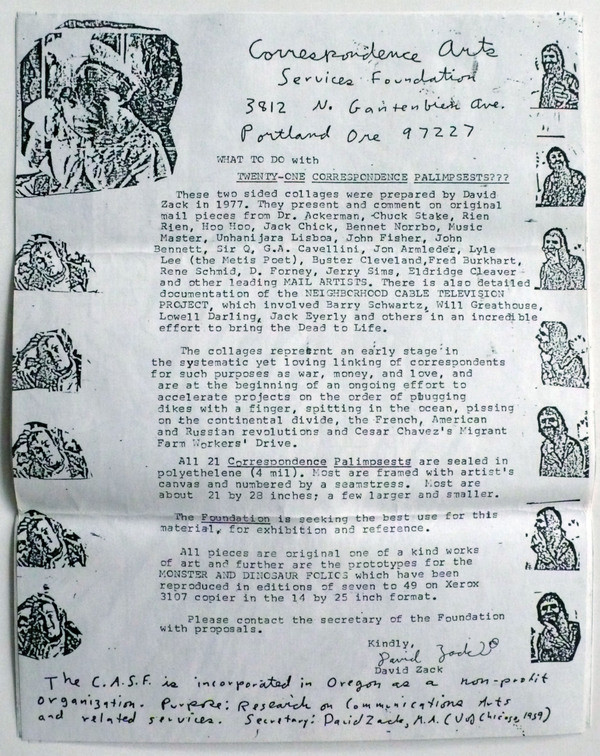 Correspondence Arts
Services Foundation
3812 N. Gantenbien Ave.
Portland Ore 97227
WHAT TO DO with
TWENTY-ONE CORRESPONDENCE PALIMPSESTS???
These two sided collages were prepared by David
Zack in 1977. They present and comment on original
mail pieces from Dr. Ackerman, Chuck Stake, Rien
Rien, Hoo Hoo, Jack Chick, Bennet Norrbo, Music
Master, Unhanijara Lisboa, John Fisher, John
Bennett, Sir Q, G.A. Cavellini, Jon Armleder, Lyle
Lee (the Metis Poet), Buster Cleveland,Fred Burkhart,
Rene Schmid, D. Forney, Jerry Sims, Eldridge Cleaver
and other leading MAIL ARTISTS. There is also detailed
documentation of the NEIGHBORHOOD CABLE TELEVISION
PROJECT, which involved Barry Schwartz, Will Greathouse,
Lowell Darling, Jack Eyerly and others in an incredible
effort to bring the Dead to Life.
The collages represrnt an early stage in
the systematic yet loving linking of correspondents
for such purposes as war, money, and love, and
are at the beginning of an ongoing effort to
accelerate projects on the order of plugging
dikes with a finger, spitting in the ocean, pissing
on the continental divide, the French, American
and Russian revolutions and Cesar Chavez's Migrant
Farm Workers' Drive.
All 21 Correspondence Palimpsests are sealed in
polyethelene (4 mil). Most are framed with artist's
canvas and numbered by a seamstress. Most are
about 21 by 28 inches; a few larger and smaller.
The Foundation is seeking the best use for this
material, for exhibition and reference.
All pieces are original one of a kind works
of art and further are the prototypes for the
MONSTER AND DINOSAUR FOLIOS which have been
reproduced in editions of seven to 49 on Xerox
3107 copier in the 14 by 25 inch format.
Please contact the secretary of the Foundation
with proposals.
Kindly,
David Zack
David Zack
The C.A.S.F. is incorporated in Oregon as a non-profit
organization. Purpose: Research on Communications Arts
and related services. Secretary: David Zack, M.A. (U of Chicago, 1959)